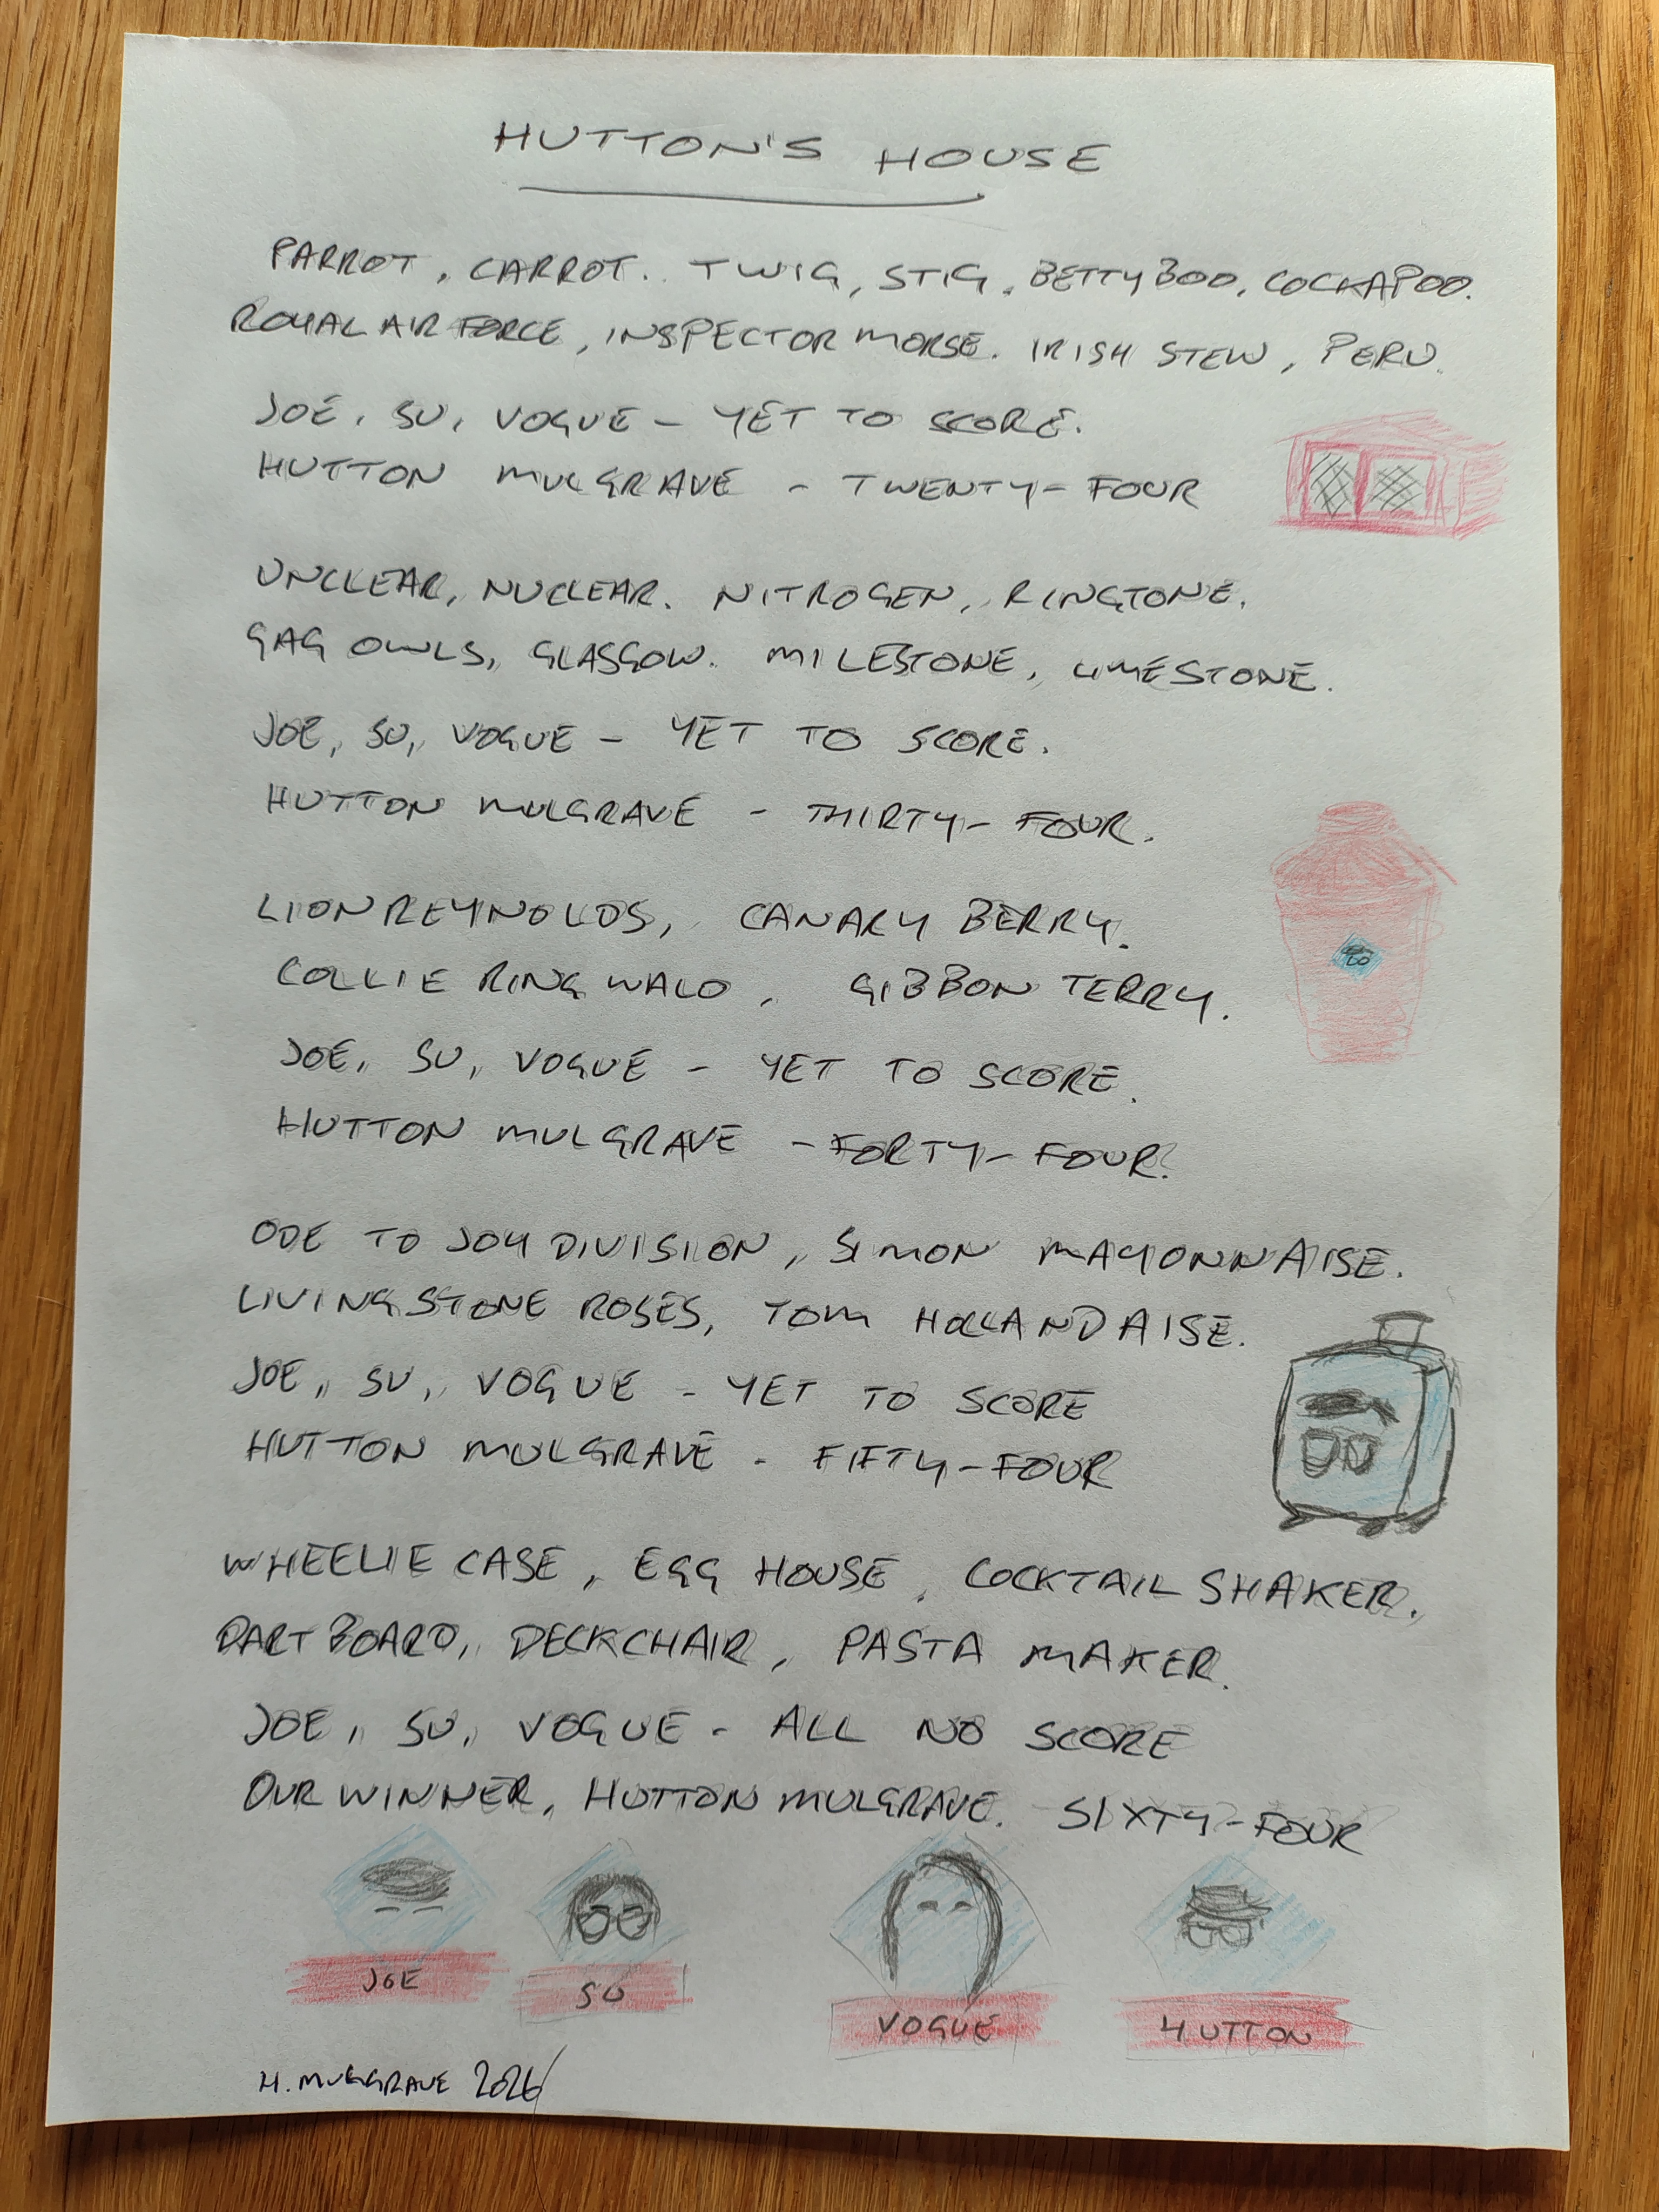 HUTTON'S HOUSE
PARROT, CARROT. TWIG, STIG. BETTY BOO, COCKAPOO.
ROYAL AIR FORCE, INSPECTOR MORSE. IRISH STEW, PERU.
JOE, SU, VOGUE - YET TO SCORE.
HUTTON MULGRAVE - TWENTY-FOUR
UNCLEAR, NUCLEAR. NITROGEN, RINGTONE.
GAG OWLS, GLASGOW. MILESTONE, LIMESTONE.
JOE, SU, VOGUE - YET TO SCORE.
HUTTON MULGRAVE - THIRTY-FOUR.
LION REYNOLDS, CANARY BERRY.
COLLIE RINGWALD, GIBBON TERRY.
JOE, SU, VOGUE - YET TO SCORE.
HUTTON MULGRAVE - FORTY-FOUR.
ODE TO JOY DIVISION, SIMON MAYONNAISE.
LIVINGSTONE ROSES, TOM HOLLANDAISE.
JOE, SU, VOGUE - YET TO SCORE
HUTTON MULGRAVE - FIFTY-FOUR
WHEELIE CASE, EGG HOUSE, COCKTAIL SHAKER.
DARTBOARD, DECKCHAIR, PASTA MAKER.
JOE, SU, VOGUE - ALL NO SCORE
OUR WINNER, HUTTON MULGRAVE. SIXTY-FOUR
JOE SU VOGUE HUTTON
H. MULGRAVE 2026